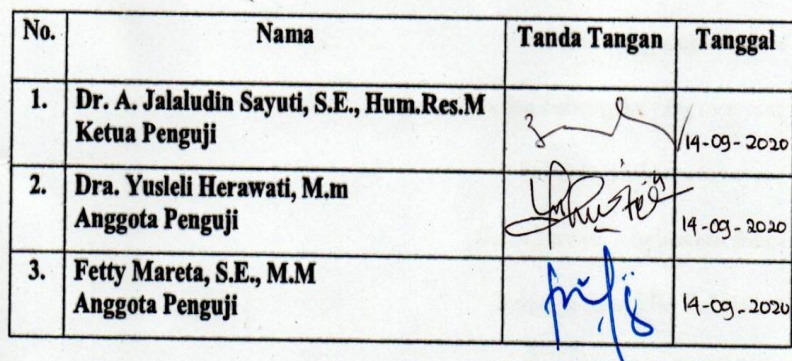 No. Nama Tanda Tangan Tanggal
1. Dr. A. Jalaludin Sayuti, S.E., Hum.Res.M
Ketua Penguji
14-09-2020
2. Dra. Yusleli Herawati, M.m
Anggota Penguji
14-09-2020
3. Fetty Mareta, S.E., M.M
Anggota Penguji
14-09-2020